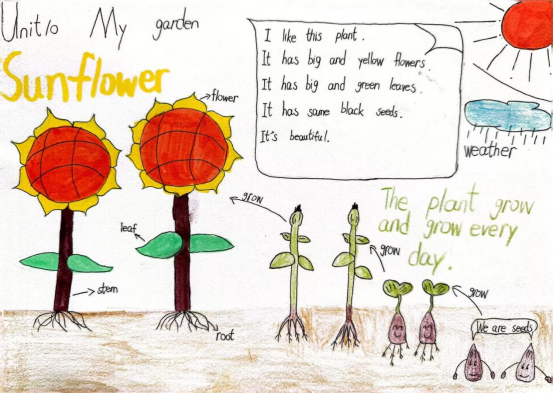 Unit10 My garden
Sunflower
flower
I like this plant.
It has big and yellow flowers.
It has big and green leaves.
It has same black seeds.
It's beautiful.
weather
leaf
stem
root
grow
grow
grow
The plant grow
and grow every
day.
We are seeds